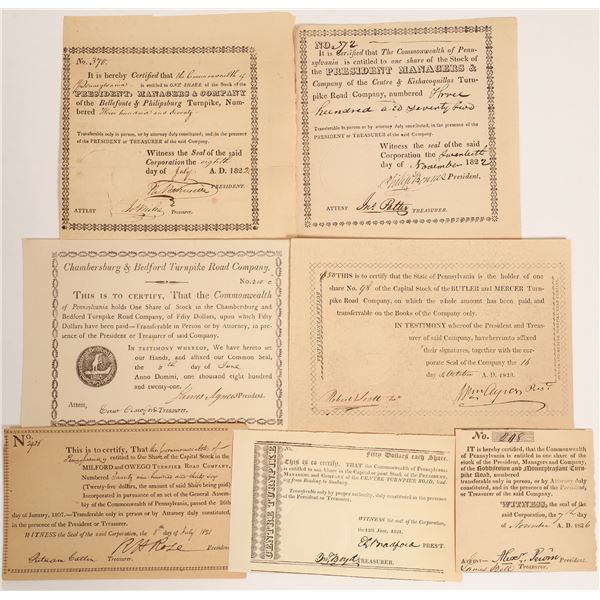 No. 370.
It is hereby Certified that the Commonwealth of
Pennsylvania is entitled to ONE SHARE of the Stock of the
PRESIDENT, MANAGERS & COMPANY
of the Bellefonte & Philipsburg Turnpike, Num-
bered Three hundred and Seventy
Transferable only in person, or by attorney duly constituted; and in the presence
of the PRESIDENT or TREASURER of the said Company.
Witness the Seal of the said
Corporation the eighth
day of July A. D. 1822
PRESIDENT.
ATTEST
Treasurer.
NO. 372
It is Certified that The Commonwealth of Penn-
sylvania is entitled to one share of the Stock of the
PRESIDENT MANAGERS &
Company of the Centre & Kishacoquillas Turn-
pike Road Company, numbered Three
hundred and Seventy two
Transferable only in person, or by attorney duly constituted; and in the presence
of the PRESIDENT or TREASURER of the said Company.
Witness the seal of the said
Corporation the twentieth
day of November 1822
President,
ATTEST Jno. Potter TREASURER.
Chambersburg & Bedford Turnpike Road Company.
No.
THIS IS TO CERTIFY, That the Commonwealth
of Pennsylvania holds One Share of Stock in the Chambersburg and
Bedford Turnpike Road Company, of Fifty Dollars, upon which Fifty
Dollars have been paid—Transferable in Person or by Attorney, in pre-
sence of the President or Treasurer of said Company.
IN TESTIMONY whereof, We have hereto set
our Hands, and affixed our Common Seal,
the 5th day of June
Anno Domini, one thousand eight hundred
and twenty-one.
James Agnew President.
Attest,
Treasurer.
$50 THIS is to certify that the State of Pennsylvania is the holder of one
share No. 98 of the Capital Stock of the BUTLER and MERCER Turn-
pike Road Company, on which the whole amount has been paid, and
transferable on the Books of the Company only.
IN TESTIMONY whereof the President and Treas-
urer of said Company, have hereunto affixed
their signatures, together with the cor-
porate Seal of the Company the 16
day of October A. D. 1823.
Robert Scott
Wm Ayres
No.
This is to certify, That the Commonwealth of
Pennsylvania entitled to One Share of the Capital Stock in the
MILFORD and OWEGO TURNPIKE ROAD COMPANY,
(Twenty-five dollars, the amount of said Share being paid)
Incorporated in pursuance of an act of the General Assem-
bly of the Commonwealth of Pennsylvania, passed the 26th
day of January, 1807.—Transferable only in Person or by Attorney duly constituted,
in the presence of the President or Treasurer.
WITNESS the seal of the said corporation, the 5th day of July 1821
R H Rose President
Treasurer.
CENTRE TURNPIKE
Fifty Dollars each Share.
THIS is to certify, THAT the Commonwealth of Pennsylvania
is entitled to one Share in the Capital or joint Stock of the PRESIDENT,
MANAGERS and COMPANY of the CENTRE TURNPIKE ROAD, lead-
ing from Reading to Sunbury.
Transferable only by proper authority, duly constituted, in presence of the
President or Treasurer.
WITNESS the seal of the Corporation,
the 12th June, 1821.
Bradford PRES'T.
Boyd TREASURER.
No. 298
It is hereby CERTIFIED, that the Commonwealth
of Pennsylvania is entitled to one share of the
stock of the President, Managers and Company,
of the Robbstown and Mountpleasant Turn-
pike Road, numbered
transferable only in person, or by attorney
duly constituted, in the presence of the Presi-
dent, or Treasurer of the said company.
WITNESS, the
seal of the said
Corporation, the 7th day
of November A. D. 1826
James Bell